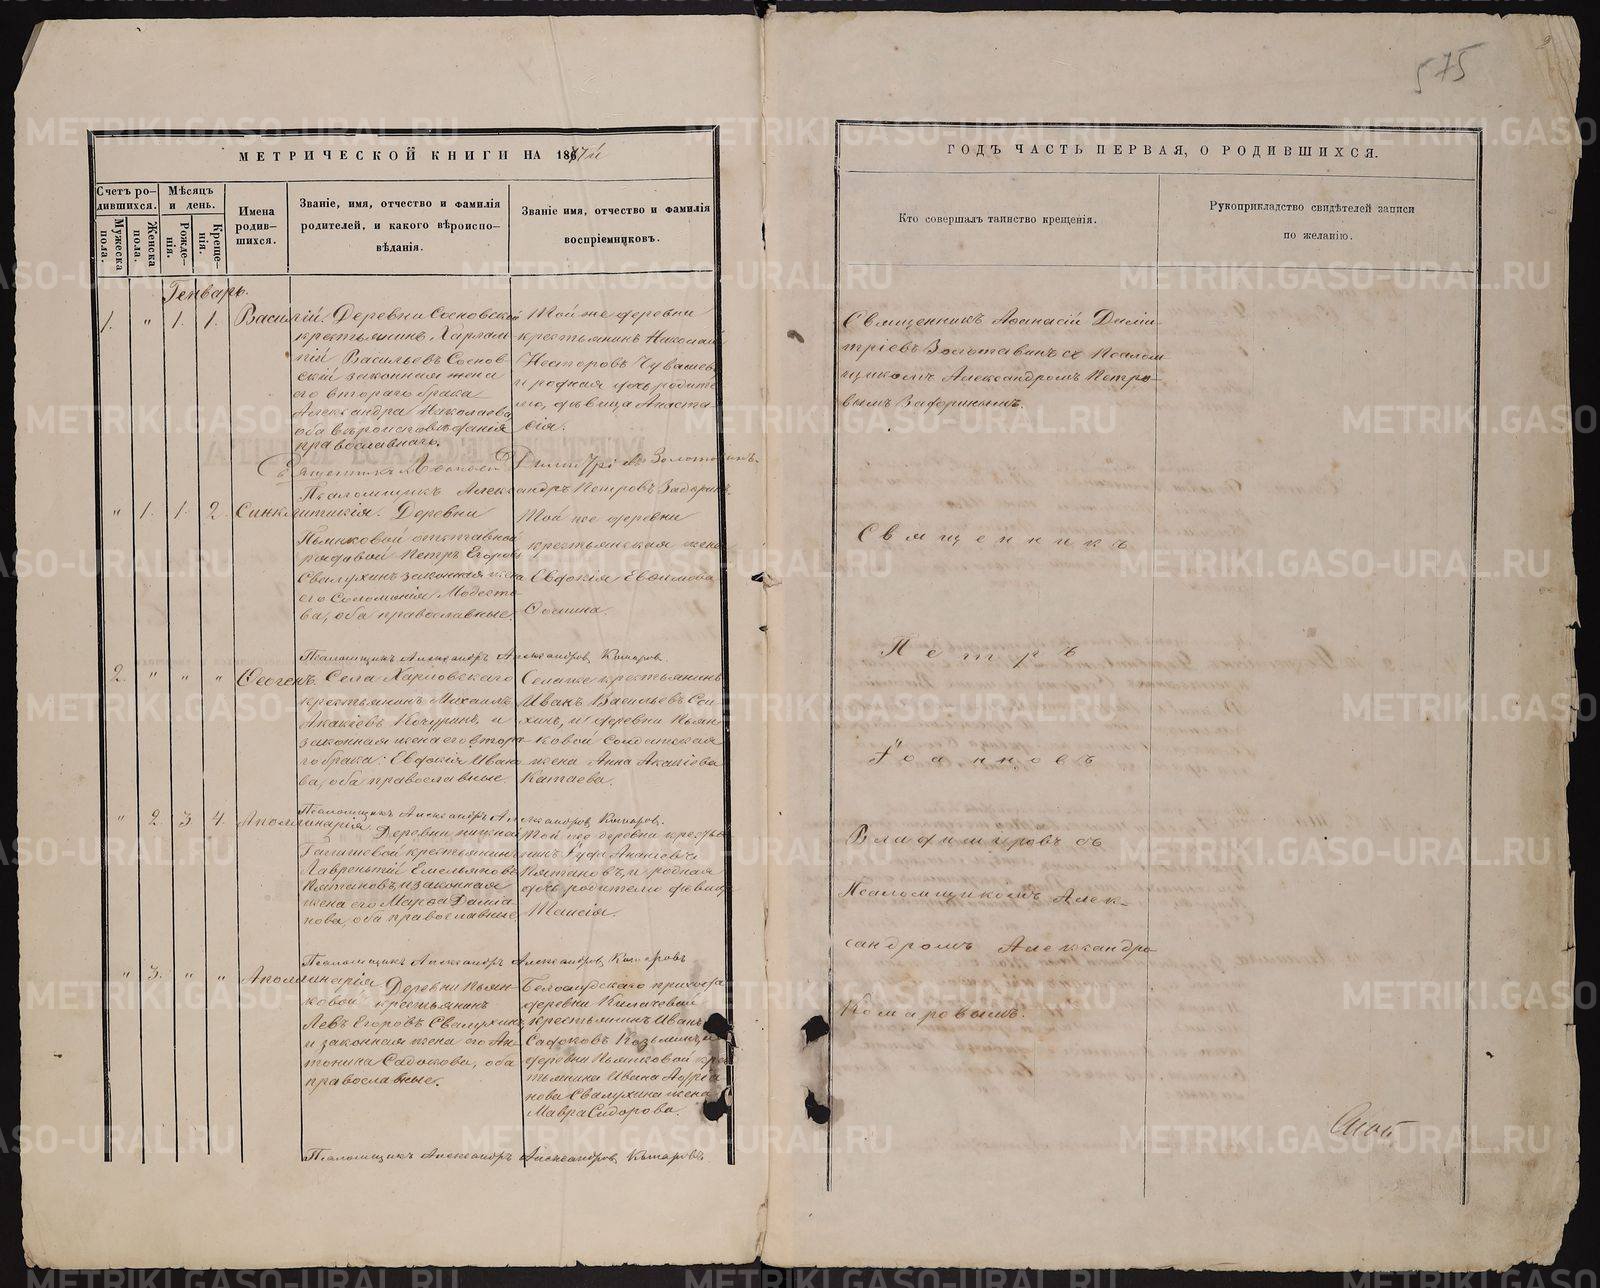 575
МЕТРИЧЕСКОЙ КНИГИ НА 1877й
ГОДЪ ЧАСТЬ ПЕРВАЯ, О РОДИВШИХСЯ.
Счетъ ро-
дившихся.
Мужеска
пола.
Женска
пола.
Мѣсяцъ
и день.
Рожде-
нія.
Креще-
нія.
Имена
родив-
шихся.
Званіе, имя, отчество и фамилія
родителей, и какого вѣроиспо-
вѣданія.
Званіе имя, отчество и фамилія
воспріемниковъ.
Кто совершалъ таинство крещенія.
Рукоприкладство свидѣтелей записи
по желанію.
Генварь.
1. " 1. 1. Василій.
Деревни Сосновской
крестьянинъ Харлам
пій Васильевъ Соснов
скій законная жена
его втораго брака
Александра Николаева
оба вѣроисповѣданія
православнаго.
Той же деревни
крестьянинъ Николай
Несторовъ Чувашевъ
и родная дчь родите
лю, дѣвица Анаста
сія.
Священникъ Аѳанасій Дими-
тріевъ Золотавинъ съ Псалом
щикомъ Александромъ Петро-
вымъ Задоринымъ.
Священникъ Аѳанасій Димитріевъ Золотавинъ.
Псаломщикъ Александръ Петровъ Задоринъ.
" 1. 1. 2. Синклитикія.
Деревни
Пьянковой отставной
рядовой Петръ Егоровъ
Свалухинъ законная жена
его Соломонія Модесто
ва, оба православные.
Той же деревни
крестьянская жена
Евдокія Евѳимова
Псаломщикъ Александръ Александровъ Комаровъ.
2. " " " Ѳеогенъ.
Села Харловскаго
крестьянинъ Михаилъ
Акакіевъ и
законная жена его втора-
го брака: Евдокія Ивано
ва, оба православные.
Села же крестьянинъ
Иванъ Васильевъ
и деревни Пьян-
ковой солдатская
жена Анна Акакіева
Катаева.
Псаломщикъ Александръ Александровъ Комаровъ.
" 2. 3. 4. Аполлинарія.
Деревни нижней
крестьянинъ
Лаврентій Емельяновъ
и законная
жена его Марѳа Даміа
нова, оба православные.
Той же деревни крестья
нинъ Руфъ Ананіевъ
и родная
дчь родителю дѣвица
Таисія.
Псаломщикъ Александръ Александровъ Комаровъ
" 3. " " Аполлинарія.
Деревни Пьян-
ковой крестьянинъ
Левъ Егоровъ Свалухинъ
и законная жена его Ан-
тонина Садокова, оба
православные.
Белослудскаго прихода
деревни Килачевой
крестьянинъ Иванъ
Садоковъ Козьминъ, и
деревни Пьянковой крес
тьянина Ивана Адріа
нова Свалухина жена
Мавра Сидорова.
Псаломщикъ Александръ Александровъ Комаровъ
Священникъ
Петръ
Іоанновъ
Владиміровъ съ
Псаломщикомъ Алек-
сандромъ Александро
Комаровымъ.
METRIKI.GASO-URAL.RU